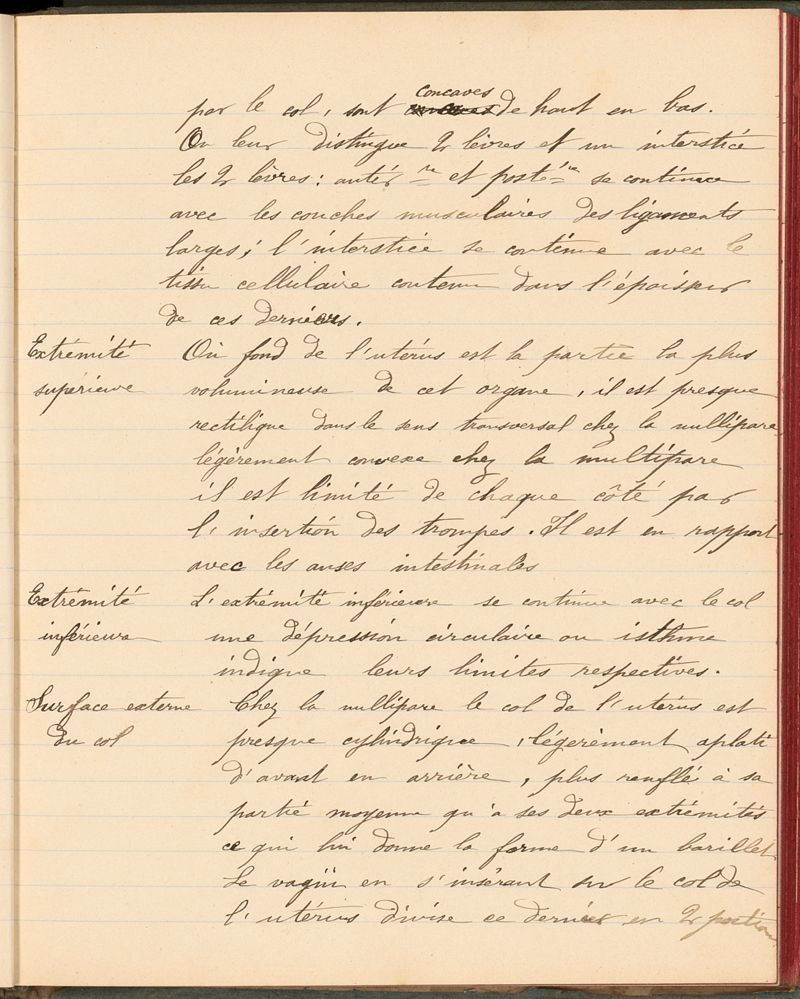 concaves
par le col, sont de haut en bas.
On leur distingue 2 lèvres et un interstice
les 2 lèvres : antér re et posté re se continue
avec les couches musculaires des ligaments
larges ; l'interstice se continue avec le
tissu cellulaire contenu dans l'épaisseur
de ces derniers.
Extrémité supérieure
Où fond de l'utérus est la partie la plus
volumineuse de cet organe, il est presque
rectilique dans le sens transversal chez la nullipare,
légèrement convexe chez la multipare
il est limité de chaque côté par
l'insertion des trompes. Il est en rapport
avec les anses intestinales
Extrémité inférieure
L'extrémité inférieure se continue avec le col
une dépression circulaire ou isthme
indique leurs limites respectives.
Surface externe du col
Chez la nullipare le col de l'utérus est
presque cylindrique, légèrement aplati
d'avant en arrière, plus renflé à sa
partie moyenne qu'a ses deux extrémités
ce qui lui donne la forme d'un barillet.
Le vagin en s'insérant sur le col de
l'utérus divise ce dernier en 2 portions